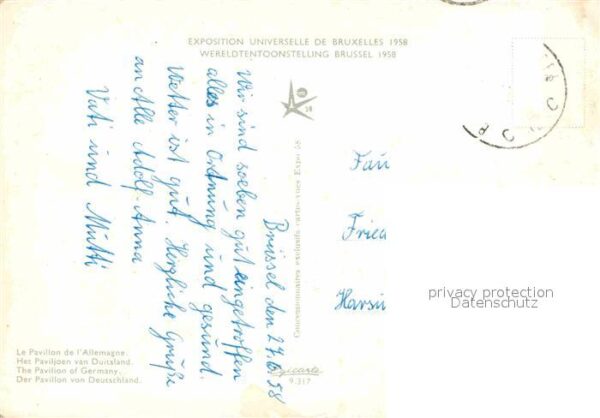 EXPOSITION UNIVERSELLE DE BRUXELLES 1958
WERELDTENTOONSTELLING BRUSSEL 1958
Brüssel den 27.6.58
Wir sind soeben gut eingetroffen
alles in Ordnung und gesund.
Wetter ist gut. Herzliche Grüße
an Alle Adolf-Anna.
Vati und Mutti
Fau
Fried
Harsu
privacy protection
Datenschutz
Le Pavillon de l'Allemagne.
Het Paviljoen van Duitsland.
The Pavilion of Germany.
Der Pavillon von Deutschland.
9.317